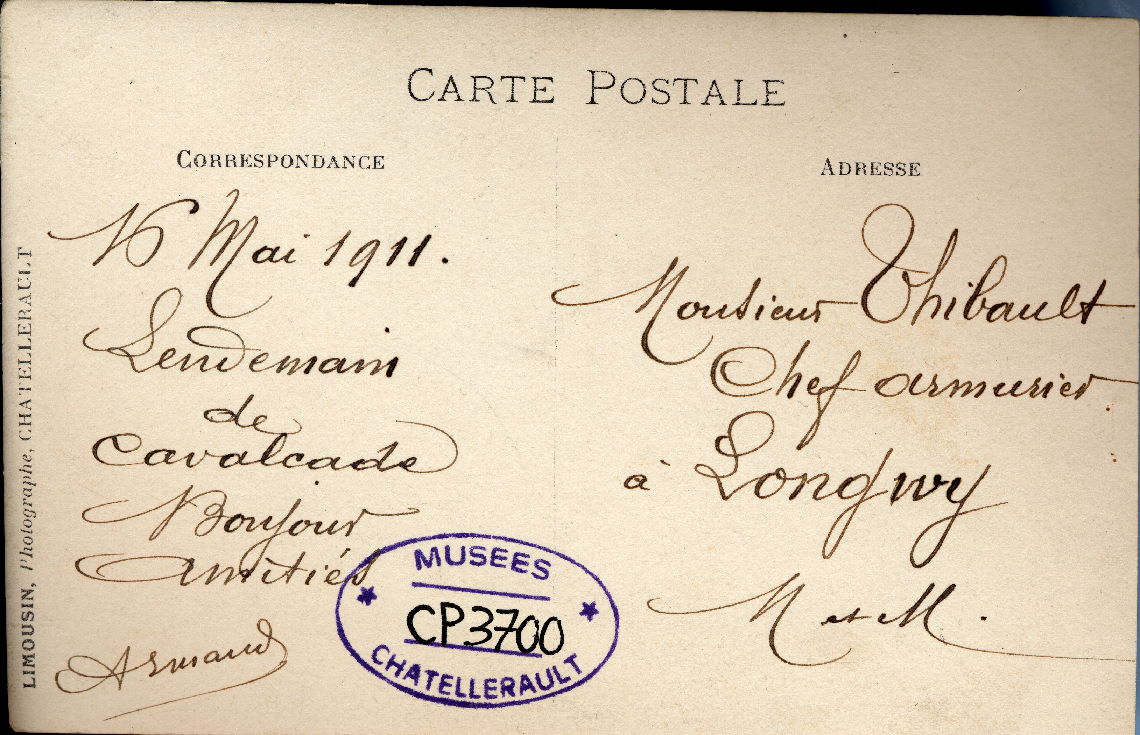 CARTE POSTALE
CORRESPONDANCE
16 Mai 1911.
Lendemain
de
Cavalcade
Bonjour
Amitiés
Armand
ADRESSE
Monsieur Thibault
Chef armurier
à Longwy
M et M.
LIMOUSIN, Photographe, CHATELLERAULT
MUSEES
CP3700
CHATELLERAULT